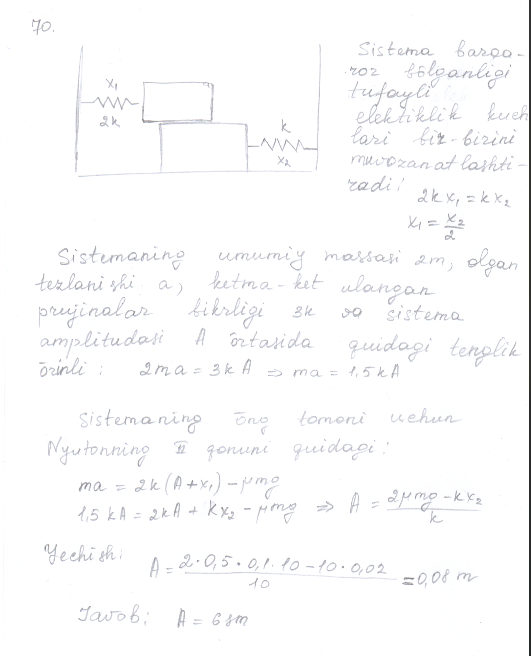 70.
x₁
2k
k
x₂
Sistema barqa-
ror bŏlganligi
tufayli
elektiklik kuch
lari bir-birini
muvozanatlashti-
radi:
2kx₁ = kx₂
x₁ = x₂/2
Sistemaning umumiy massasi 2m, olgan
tezlanishi a, ketma-ket ulangan
prujinalar bikrligi 3k va sistema
amplitudasi A ŏrtasida quidagi tenglik
ŏrinli: 2ma = 3kA ⇒ ma = 1,5kA
Sistemaning ŏng tomoni uchun
Nyutonning II qonuni quidagi:
ma = 2k(A+x₁) − μmg
1,5kA = 2kA + kx₂ − μmg ⇒ A = (2μmg − kx₂)/k
Yechish: A = (2·0,5·0,1·10 − 10·0,02)/10 = 0,08 m
Javob: A = 6 sm